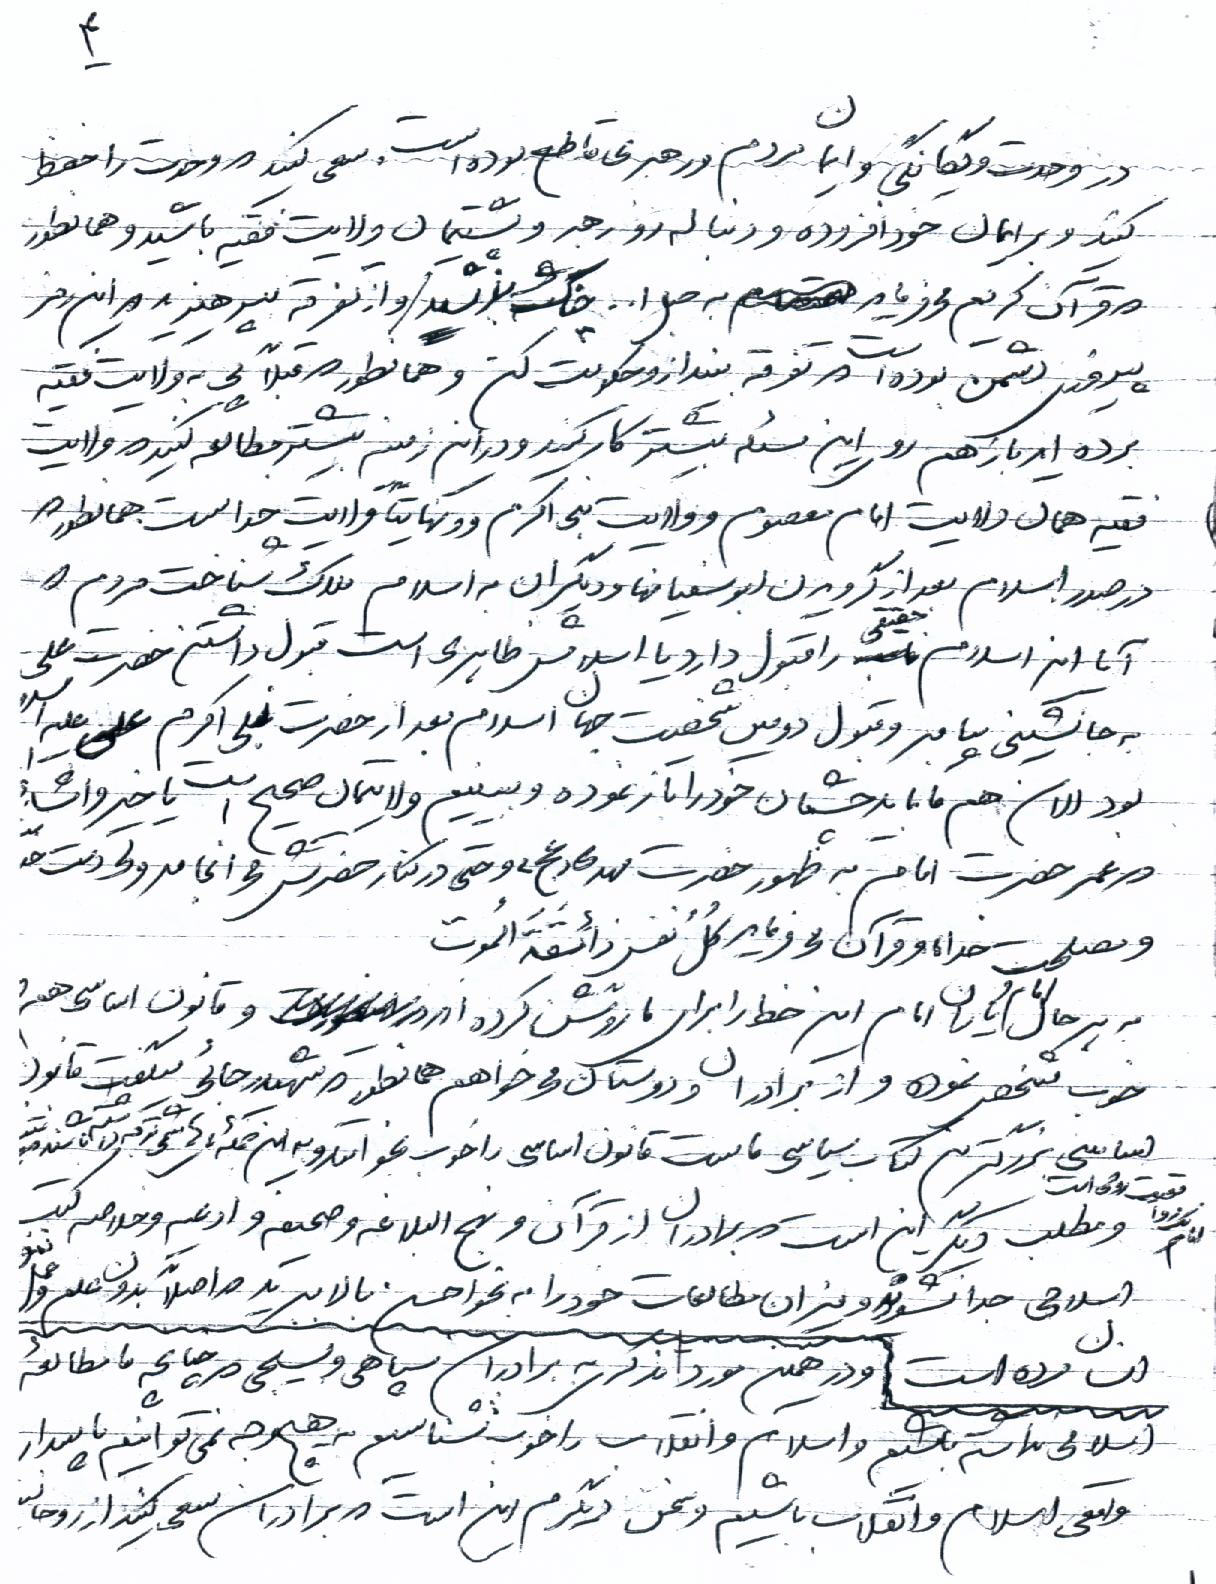 ۴
در وحدت و یگانگی و ایمان مردم و رهبری قاطع بوده است. سعی کنید که وحدت را حفظ
کنید و بر ایمان خود افزوده و دنباله رو رهبر و پشتیبان ولایت فقیه باشید و همانطور
که قرآن کریم می‌فرماید به حبل ا.. چنگ زنید و از تفرقه بپرهیزید که این رمز
پیروزی دشمن بوده است که تفرقه بینداز و حکومت کن و همانطور که قبلاً پی به ولایت فقیه
برده اید باز هم روی این مسئله بیشتر کار کنید و در این زمینه بیشتر مطالعه کنید که ولایت
فقیه همان ولایت امام معصوم و ولایت نبی اکرم و و نهایتاً ولایت خداست همانطور که
در صدر اسلام بعد از گرویدن ابوسفیانها و دیگران به اسلام ملاک شناخت مردم که
آیا این اسلام حقیقی را قبول دارد یا اسلامش ظاهری است قبول داشتن حضرت علی
به جانشینی پیامبر و قبول دومین شخصیت جهان اسلام بعد از حضرت نبی اکرم علی علیه السلام
بود الان هم ما باید چشمان خود را باز نموده و ببینیم ولایتمان صحیح است یا خیر و انشاء
که عمر حضرت امام به ظهور حضرت مهدی (عج) و حتی در کنار حضرتش می انجامد ولی دست
و مصلحت خداها و قرآن می‌فرماید کُلُّ نَفسٍ ذائِقَةُ المَوت
به هر حال امام این خط را برای ما روشن کرده اند و قانون اساسی هم
خوب مشخص نموده و از برادران و دوستان می‌خواهم همانطور که شهید رجائی میگفت قانون
اساسی بزرگترین کتاب سیاسی ماست قانون اساسی را خوب بخوانید و به این
و مطلب دیگر این است که برادران از قرآن و نهج البلاغه و صحیفه و ادعیه و خلاصه کتب
اسلامی جدا نشوند و میزان مطالعات خود را به نحو احسن بالا ببرید که اصلاً بدون علم و
انسان مرده است و در همین مورد تذکری به برادران سپاهی و بسیجی که چنانچه ما مطالعهٔ
اسلامی نداشته باشیم و اسلام و انقلاب را خوب نشناسیم به هیچ وجه نمی‌توانیم پاسدار
واقعی اسلام و انقلاب باشیم و سخن دیگرم این است که برادران سعی کنید از